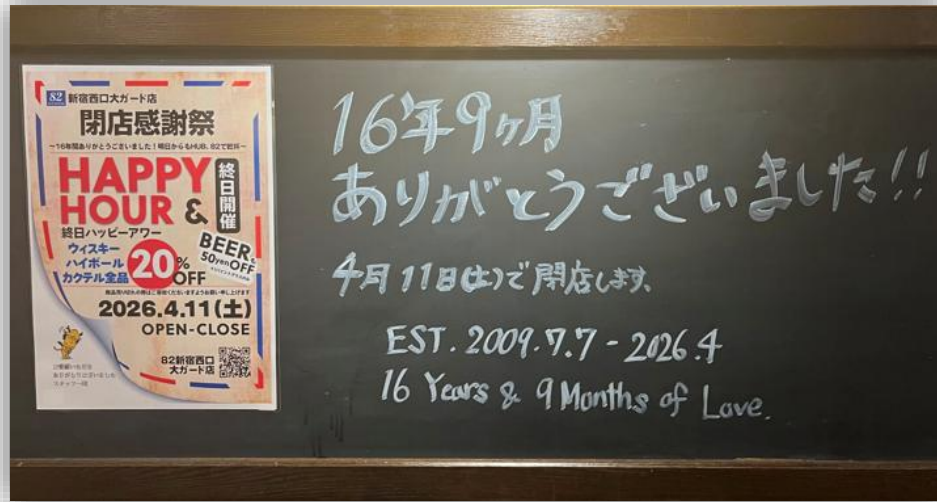 82 新宿西口大ガード店
閉店感謝祭
~16年間ありがとうございました!明日からもHUB、82で乾杯~
HAPPY
HOUR &
終日開催
終日ハッピーアワー
ウィスキー
ハイボール
カクテル全品
20%
OFF
BEERも
50yenOFF
2026.4.11(土)
OPEN-CLOSE
82新宿西口
大ガード店
ありがとうございました
スタッフ一同
16年9ヶ月
ありがとうございました!!
4月11日(土)で閉店します。
EST. 2009.7.7 - 2026.4
16 Years & 9 Months of Love.